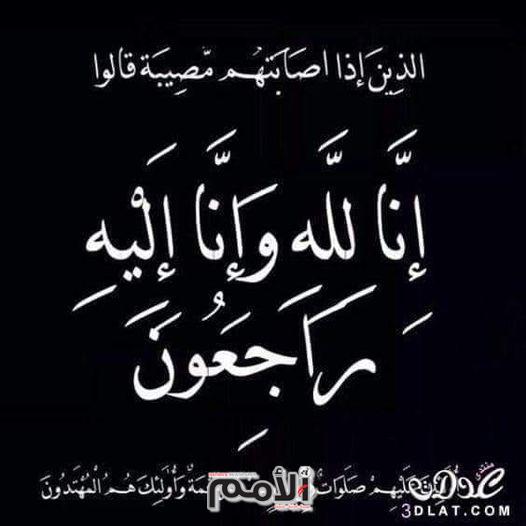 الذِينَ إذا اصَابَتهُم مّصِيبَة قالوا
إِنَّا لله وَإنَّا إلَيْهِ
رَاجَعُونَ
عَلَيهِمْ صَلَوات وَأُولَئِكَ هُمُ الْمُهْتَدُونَ
الأمم
عدلات
3DLAT.COM